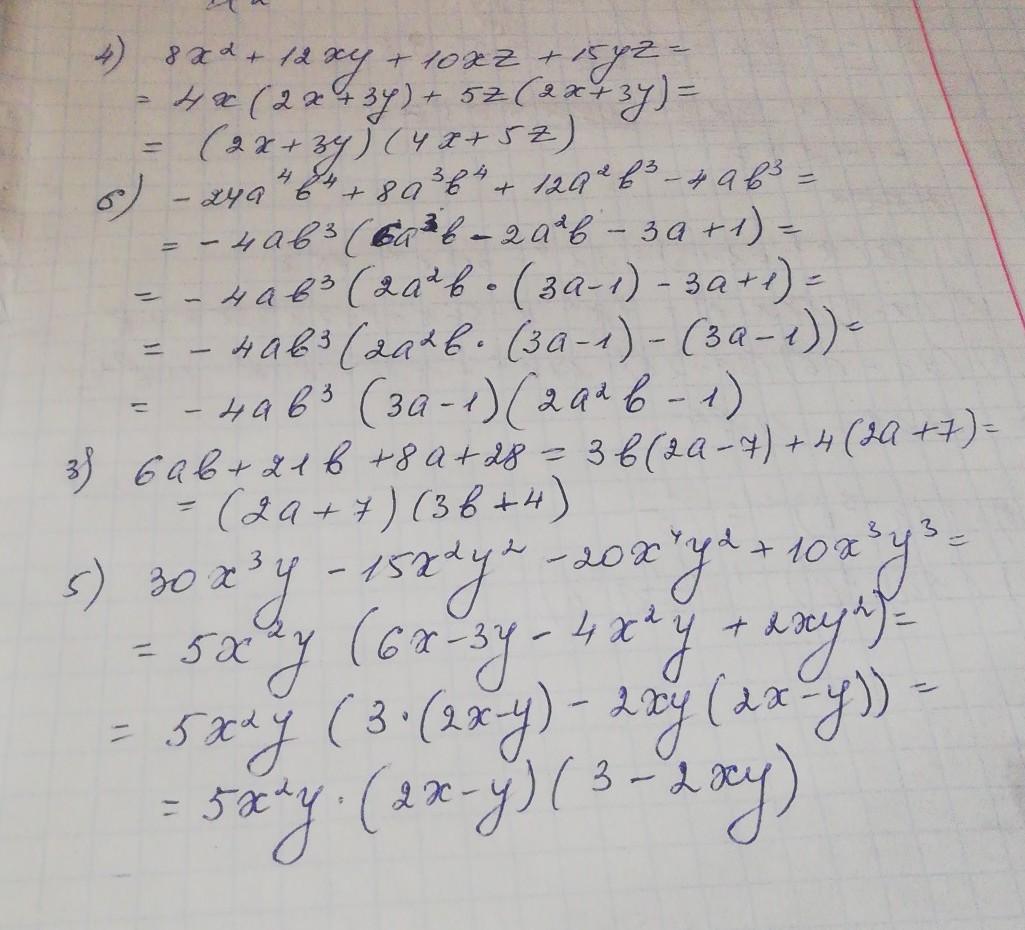 4) 8x² + 12xy + 10xz + 15yz =
= 4x(2x+3y) + 5z(2x+3y) =
= (2x+3y)(4x+5z)
6) -24a⁴b⁴ + 8a³b⁴ + 12a²b³ - 4ab³ =
= -4ab³(6a³b - 2a²b - 3a + 1) =
= -4ab³(2a²b · (3a-1) - 3a+1) =
= -4ab³(2a²b · (3a-1) - (3a-1)) =
= -4ab³ (3a-1)(2a²b - 1)
3) 6ab + 21b + 8a + 28 = 3b(2a-7) + 4(2a+7) =
= (2a+7)(3b+4)
5) 30x³y - 15x²y² - 20x⁴y² + 10x³y³ =
= 5x²y (6x - 3y - 4x²y + 2xy²) =
= 5x²y (3·(2x-y) - 2xy(2x-y)) =
= 5x²y · (2x-y)(3 - 2xy)